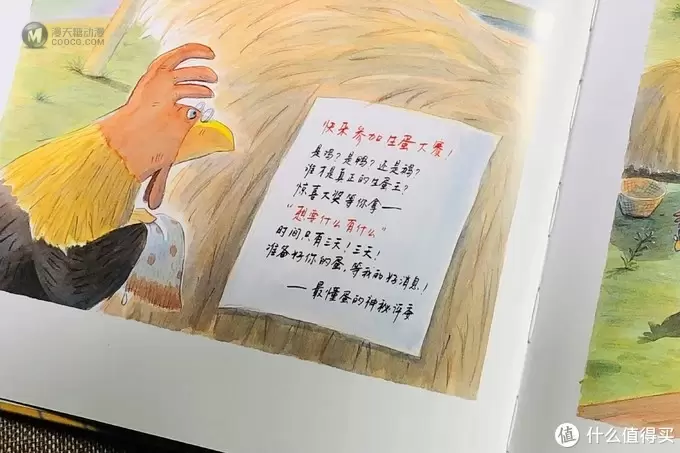 漫天糖动漫
COOCO.COM
快来参加生蛋大赛！
是鸡？是鸭？还是鹅？
谁才是真正的生蛋王？
惊喜大奖等你拿——
“想要什么有什么”
时间只有三天！三天！
准备好你的蛋，等我的好消息！
——最懂蛋的神秘评委
值 什么值得买